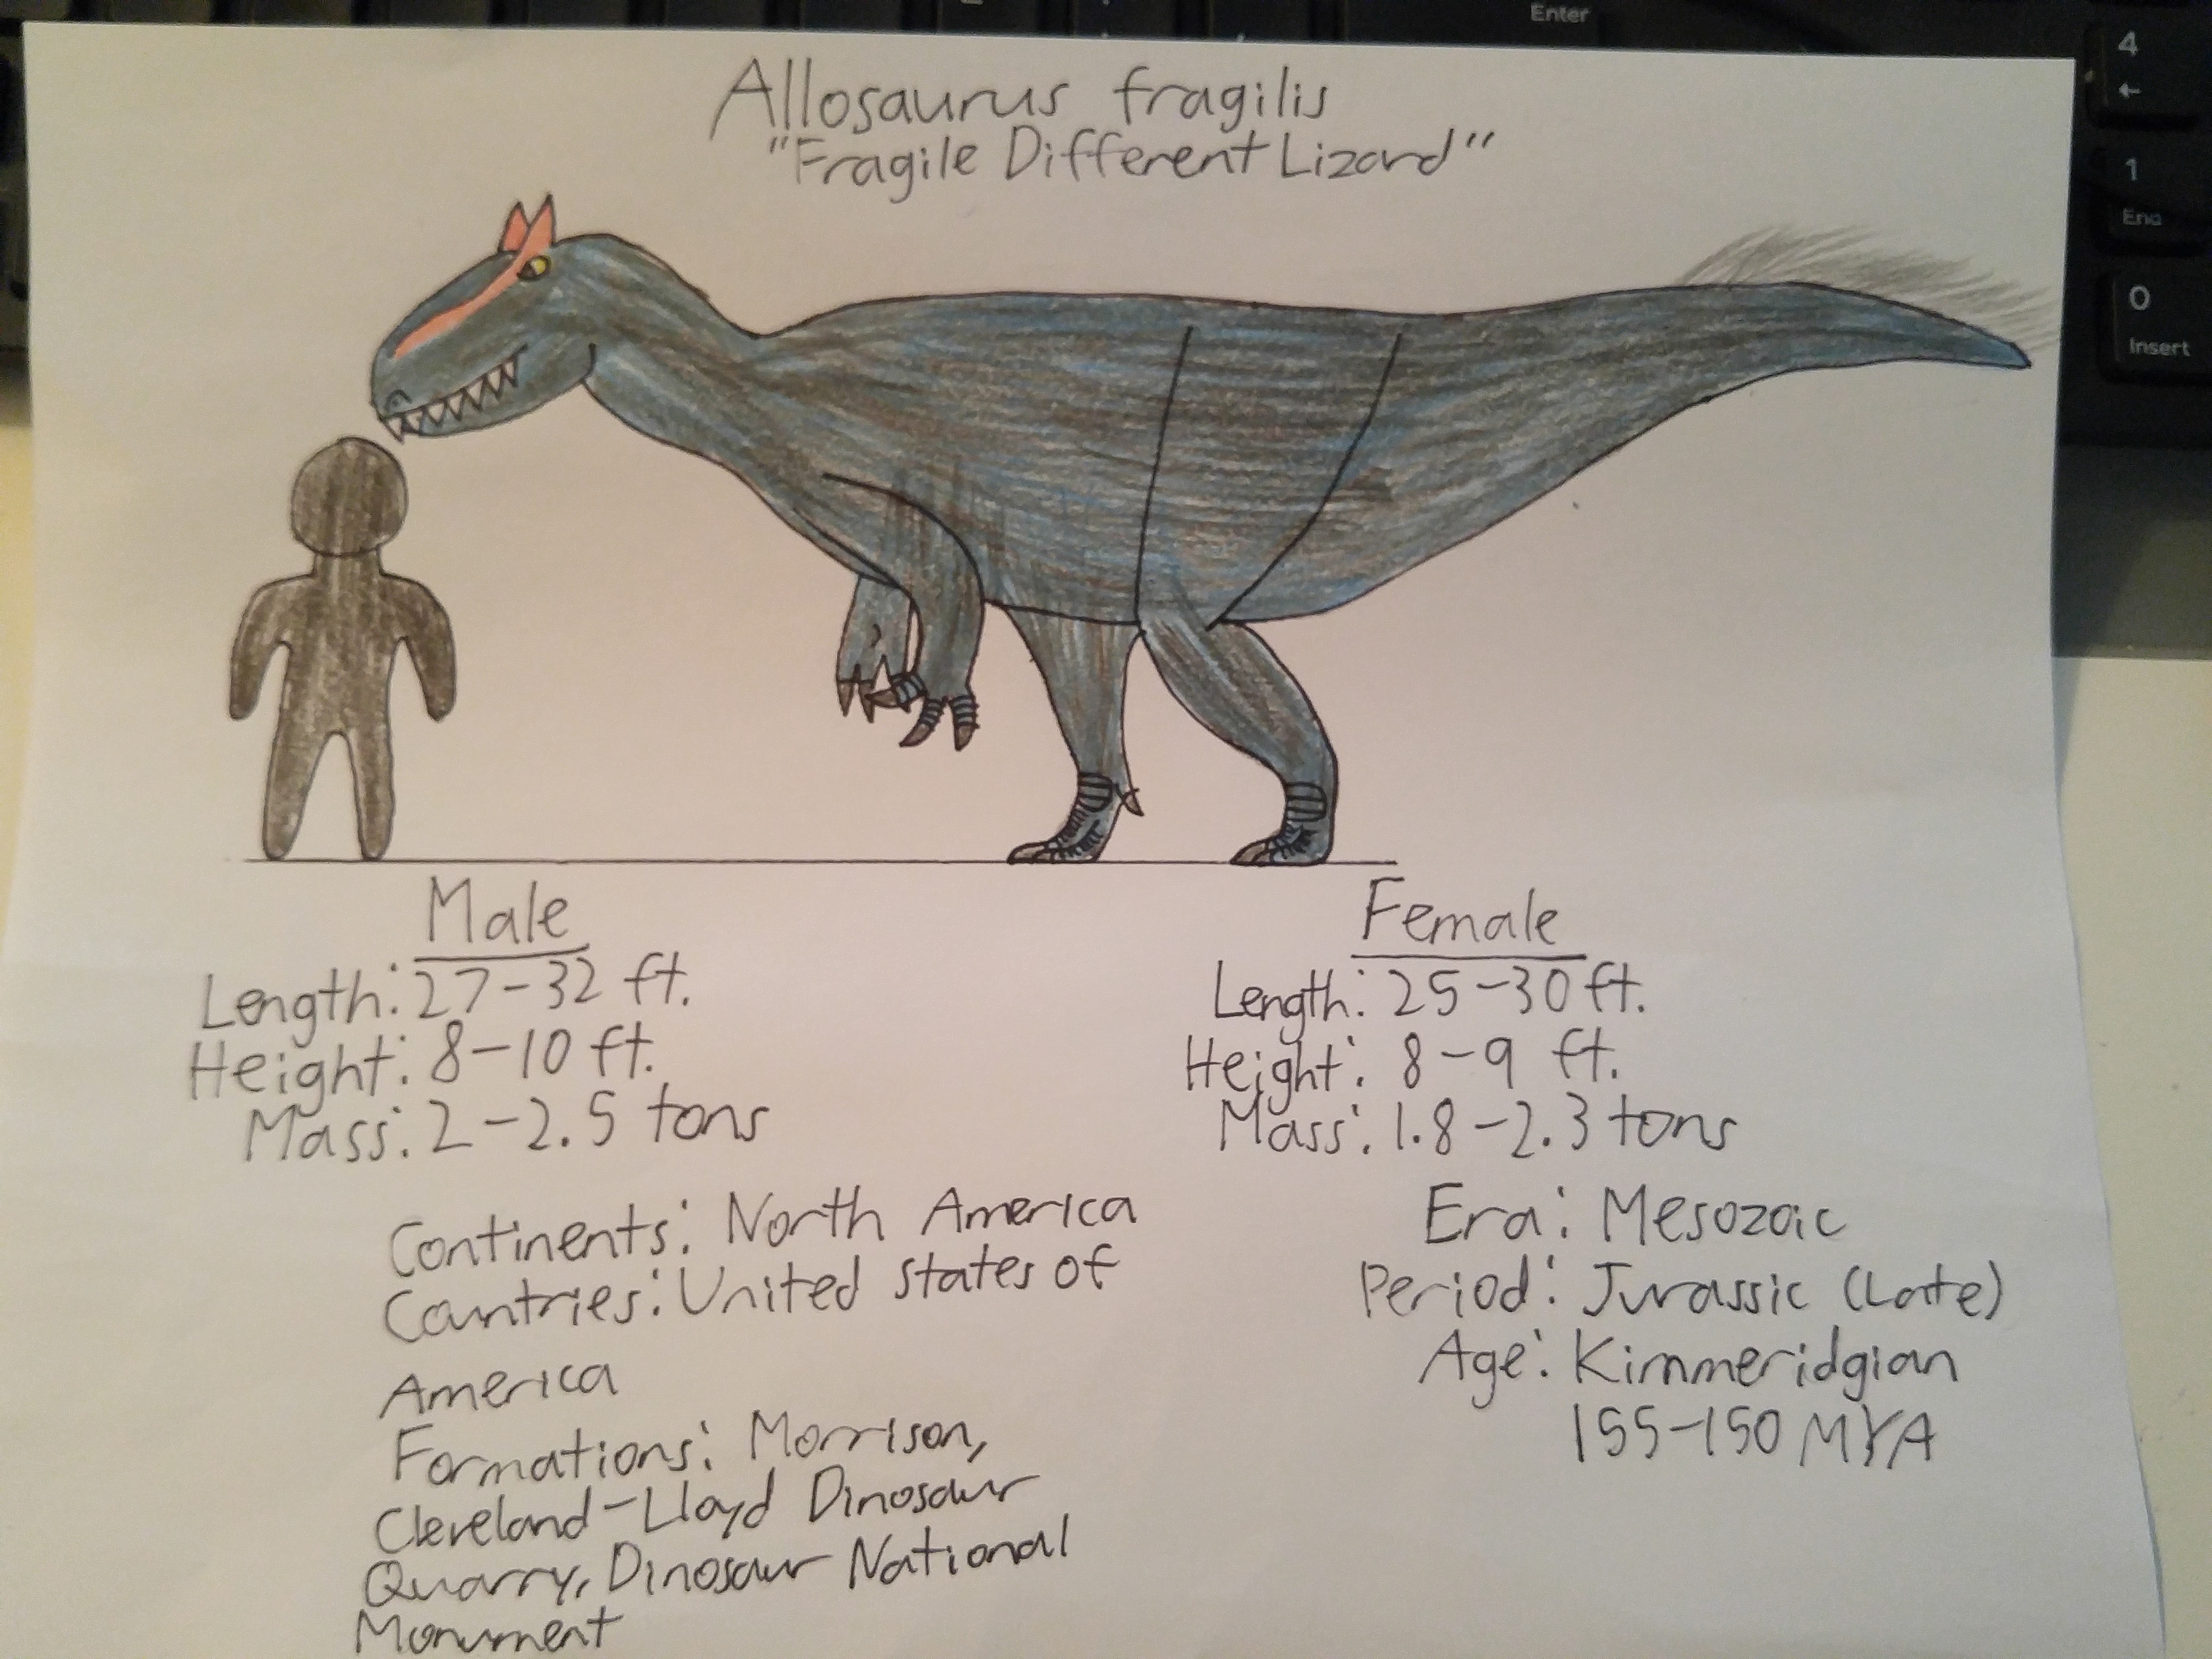 Enter
4
←
1
End
0
Insert
Allosaurus fragilis
"Fragile Different Lizard"
Male
Length: 27-32 ft.
Height: 8-10 ft.
Mass: 2-2.5 tons
Female
Length: 25-30 ft.
Height: 8-9 ft.
Mass: 1.8-2.3 tons
Continents: North America
Countries: United States of
America
Formations: Morrison,
Cleveland-Lloyd Dinosaur
Quarry, Dinosaur National
Monument
Era: Mesozoic
Period: Jurassic (Late)
Age: Kimmeridgian
155-150 MYA